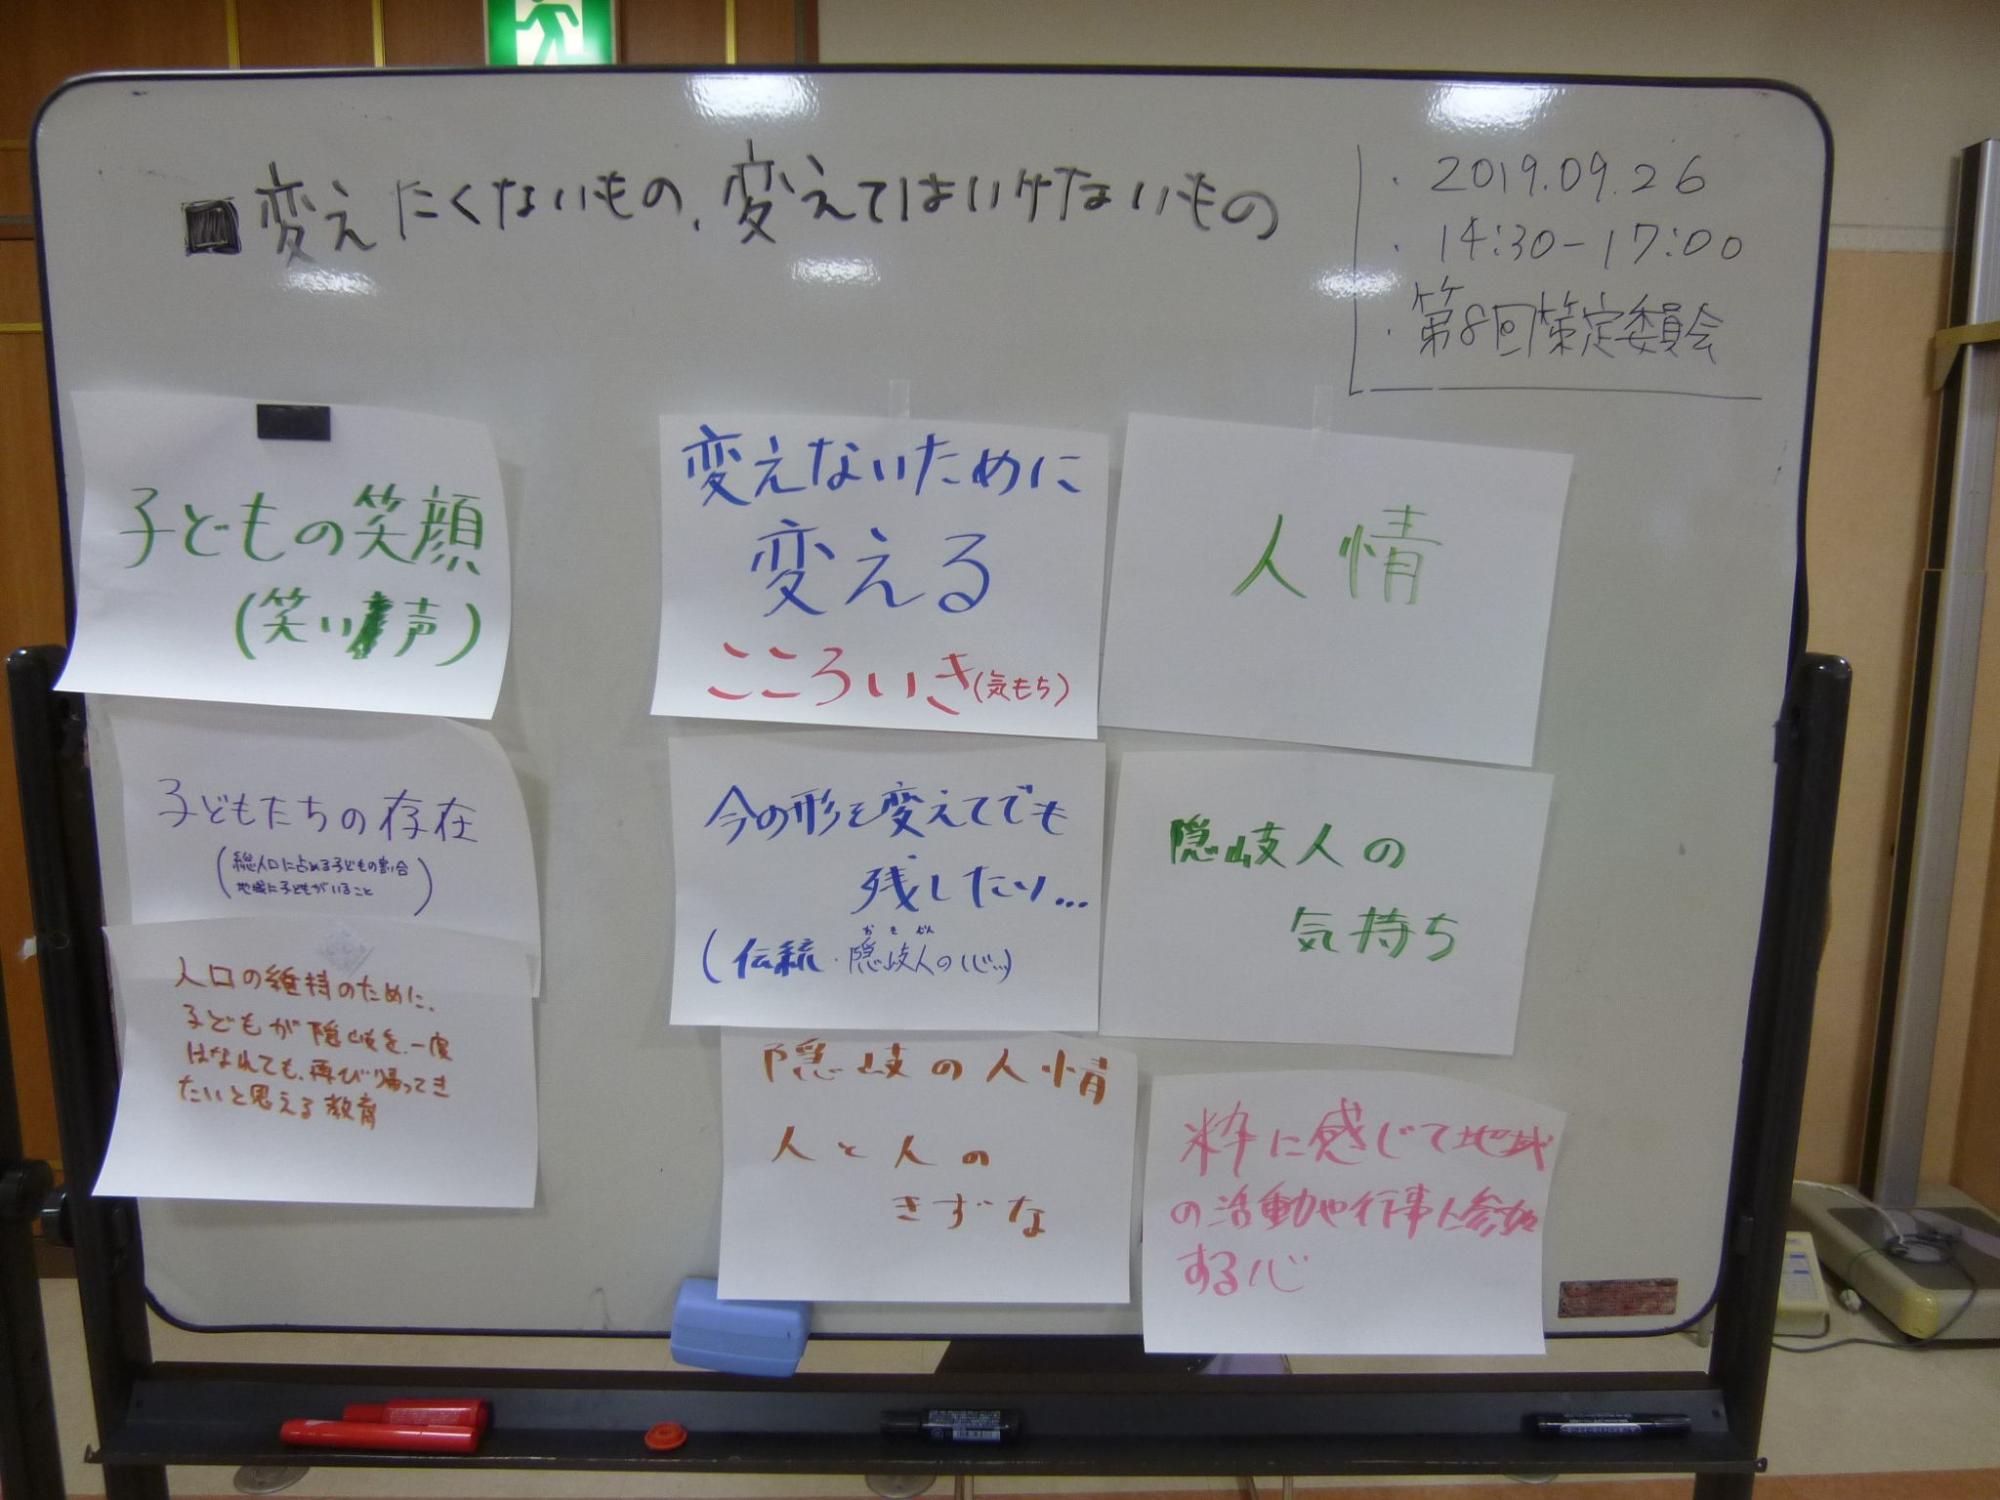 ■変えたくないもの、変えてはいけないもの
・2019.09.26
・14:30-17:00
・第8回策定委員会
子どもの笑顔
(笑い声)
子どもたちの存在
(総人口に占める子どもの割合
地域に子どもがいること)
人口の維持のために、
子どもが隠岐を、一度
はなれても、再び帰ってき
たいと思える教育
変えないために
変える
こころいき(気もち)
今の形を変えてでも
残したい…
(伝統・隠岐人の心…)
隠岐の人情
人と人の
きずな
人情
隠岐人の
気持ち
粋に感じて地域
の活動や行事に参加
する心